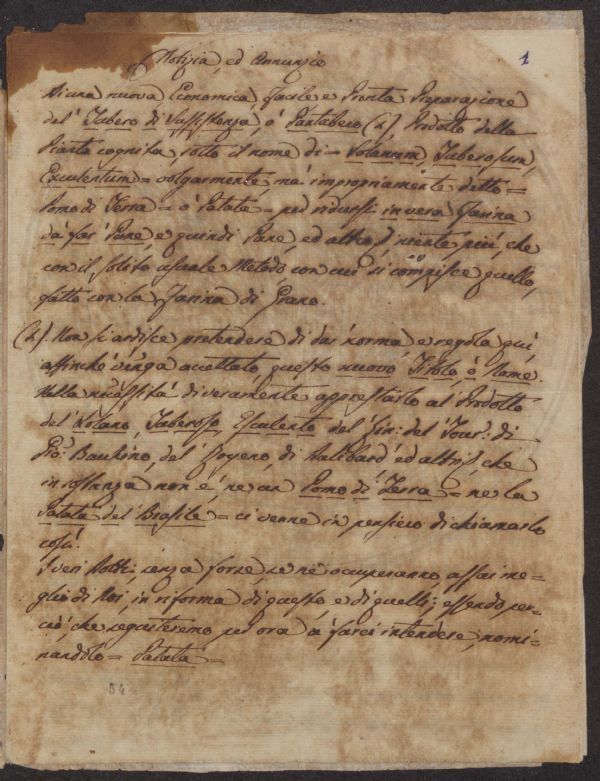 1
Notizia, ed Annunzio
Di una nuova, Economica, facile e Pronta Preparazione
del' Tubero di Sussistenza, ò Pantubero (a), Prodotto della
Pianta cognita, sotto il nome di = Solanum, Tuberosum,
Esculentum = volgarmente, ma' impropriamente detto =
Pomo di Terra = ò Patata = per ridursi in vera Farina
da far' Pane, e quindi Pane, ed altro, niente più, che
con il solito usuale Metodo, con cui si compisce quello,
fatto con la Farina di Grano.
(a) Non si ardisce pretendere di dar' norma, e regola qui,
affinché venga accettato, questo nuovo Titolo, ò Nome.
Nella necessità diveramente appressarlo al Prodotto
del' Solano, Tuberoso, Esculento del' Lin: del' Tour: di
Gio: Bauhino, del' di Dalibard' ed altri, che
in sostanza non è, ne un Pomo di Terra = ne la
Patata del Brasile = ci venne in pensiero di chiamarlo
così.
I veri Dotti, senza forse, se ne occuperanno assai me=
glio di Noi, in riforma di questo, e di quelli; essendo per=
ciò, che seguiteremo per ora à farci intendere, nomi=
nandolo = Patata =
54